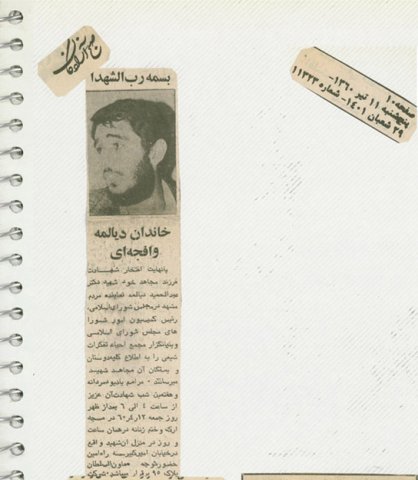 صبح آزادگان
صفحه ۱۰
پنجشنبه ۱۱ تیر ۱۳۶۰-
۲۹ شعبان ۱۴۰۱- شماره ۱۱۳۳۳
بسمه رب الشهدا
خاندان دیالمه
وافجه‌ای
بانهایت افتخار شهادت
فرزند مجاهد خود شهید دکتر
عبدالحمید دیالمه نماینده مردم
مشهد درمجلس شورای اسلامی،
رئیس کمیسیون امور شورا
های مجلس شورای اسلامی
وبنیانگزار مجمع احیاء تفکرات
شیعی را به اطلاع کلیه دوستان
و بستگان آن مجاهد شهید
میرسانند. مراسم یادبود مردانه
و هفتمین شب شهادت آن عزیز
از ساعت ۴ الی ۶ بعداز ظهر
روز جمعه ۶۰/۴/۱۲ در مسجد
ارک وختم زنانه درهمان ساعت
و روز در منزل آن شهید واقع
درخیابان امیرکبیر سه راه امین
حضور کوچه معاون السلطان
پلاک ۶۵ برقرار میباشد